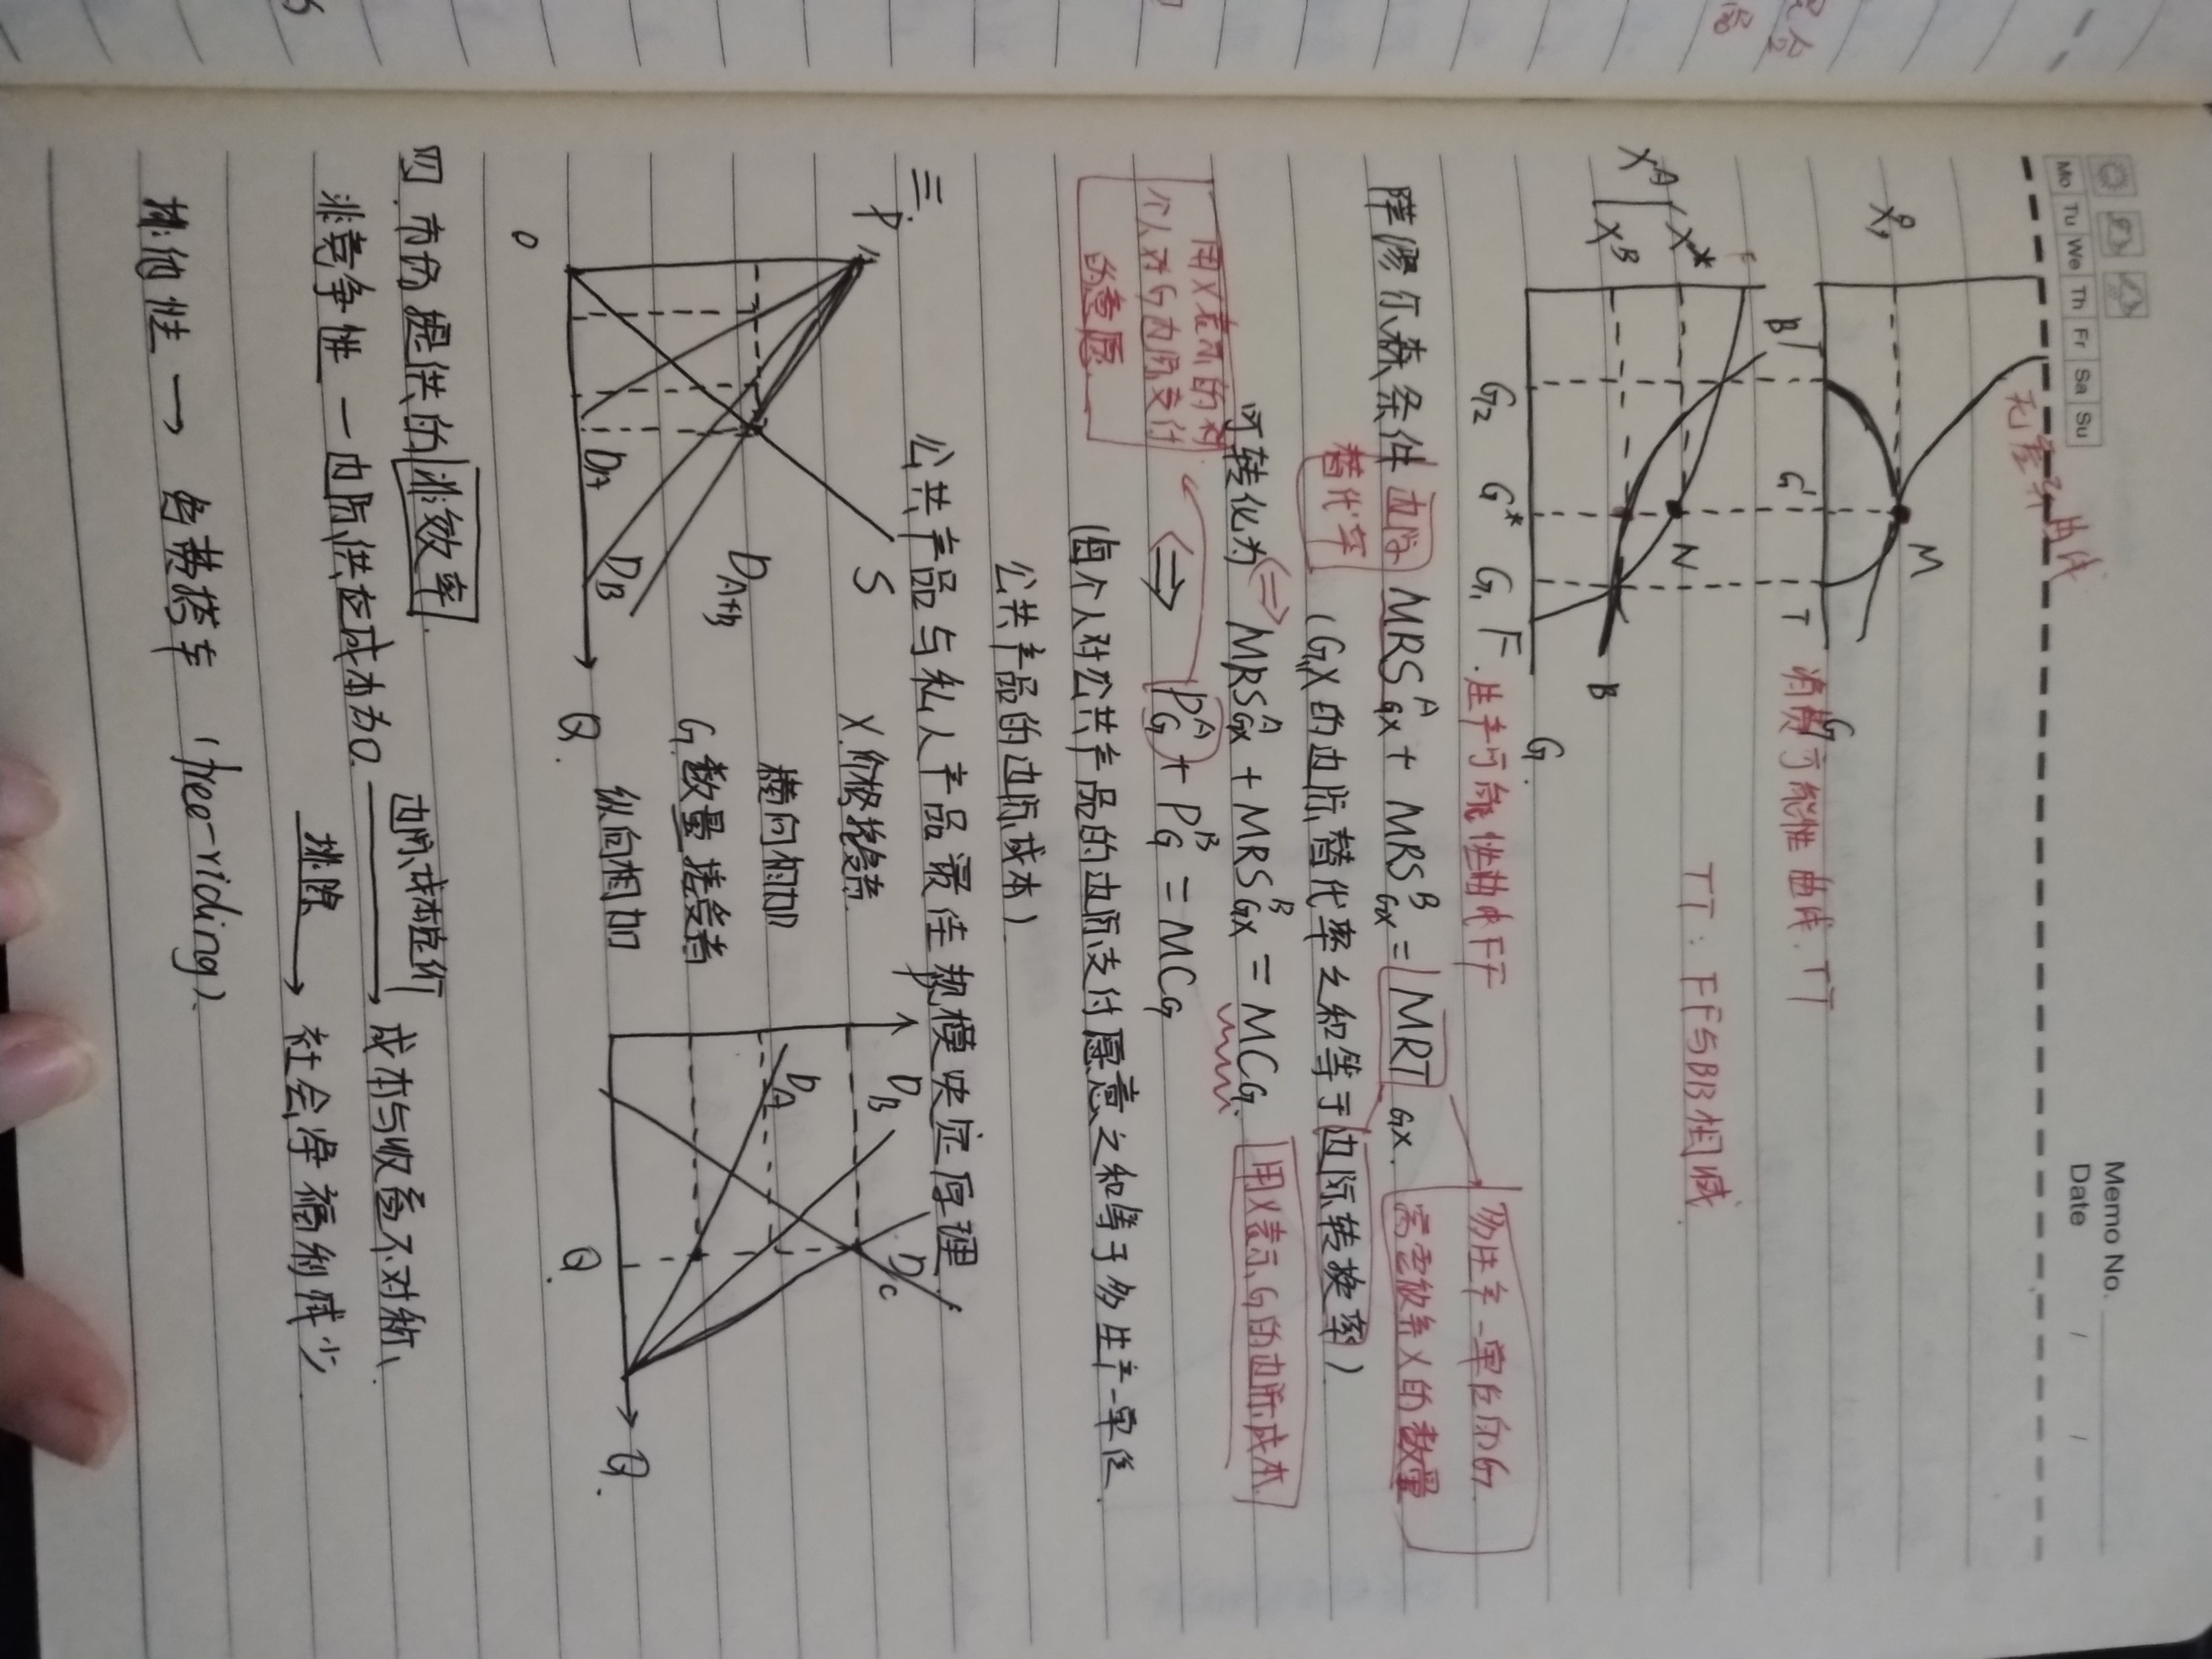 Memo No.
Date / /
Mo Tu We Th Fr Sa Su
无差异曲线
M
G' T G
消费可能性曲线. TT
TT: FF与BB相减
B
N
X^A X*
X^B
B
G2 G* G1 F G.
生产可能性曲线FF
萨缪尔森条件 边际替代率 MRS^A_GX + MRS^B_GX = MRT_GX.
多生产一单位的G
需要放弃X的数量
(G,X的边际替代率之和等于边际转换率)
可转化为 ⇔ MRS^A_GX + MRS^B_GX = MC_G. 用X表示G的边际成本
用X表示的
个人对G的边际支付
的意愿
⇔ P^A_G + P^B_G = MC_G
(每个人对公共产品的边际支付愿意之和等于多生产一单位
公共产品的边际成本)
三. 公共产品与私人产品最佳规模决定原理
P
S
D_A+B
D_B
D_A
O Q.
X 价格接受者
横向相加
G 数量接受者
纵向相加
P
D_B
D_A
D_C
Q. Q.
四. 市场提供的非效率.
非竞争性 — 边际供应成本为0. 边际成本定价 → 成本与收益不对称、
排除 → 社会净福利减少
排他性 → 免费搭车 (free-riding).